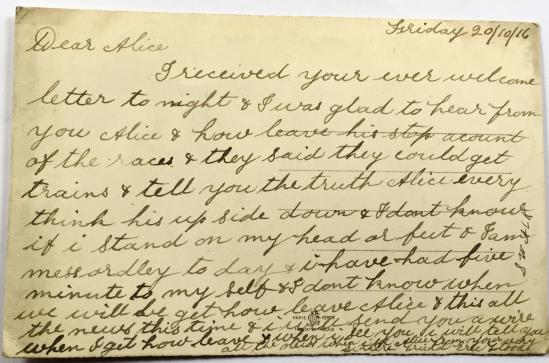 Friday 20/10/16
Dear Alice
I received your ever welcome
letter to night & I was glad to hear from
you Alice & how leave his stop acount
of the races & they said they could get
trains & tell you the truth Alice every
think his up side down & I dont know
if i stand on my head or feet & I am
mess ardley to day & i have had five
minute to my self & I dont know when
we will get how leave Alice & this all
the news this time & i will send you a wire
when I get how leave & when I see you I will tell you
all the
from your very
sincere truth